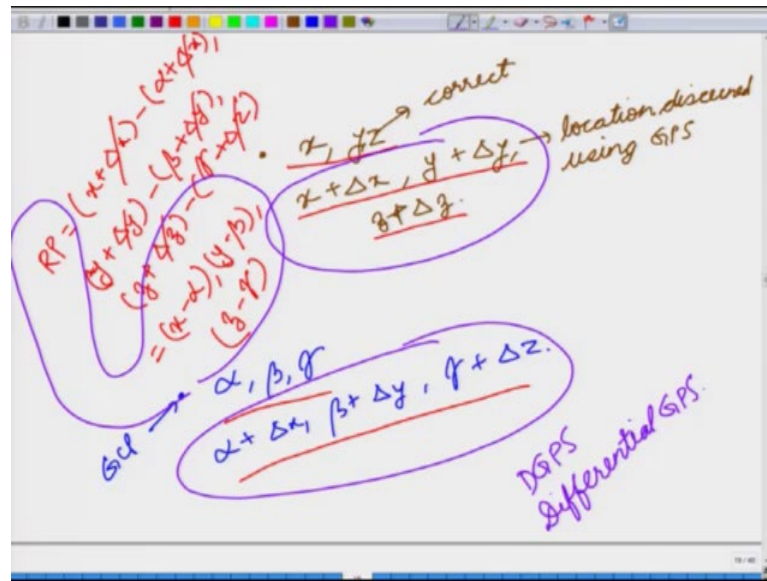 RP = (x + Δx) - (α + Δx),
(y + Δy) - (β + Δy),
(z + Δz) - (γ + Δz)
= (x - α), (y - β),
(z - γ)
x, y, z → correct
x + Δx, y + Δy, → location discerned
z + Δz. using GPS
GCP → α, β, γ
α + Δx, β + Δy, γ + Δz.
DGPS
Differential GPS.